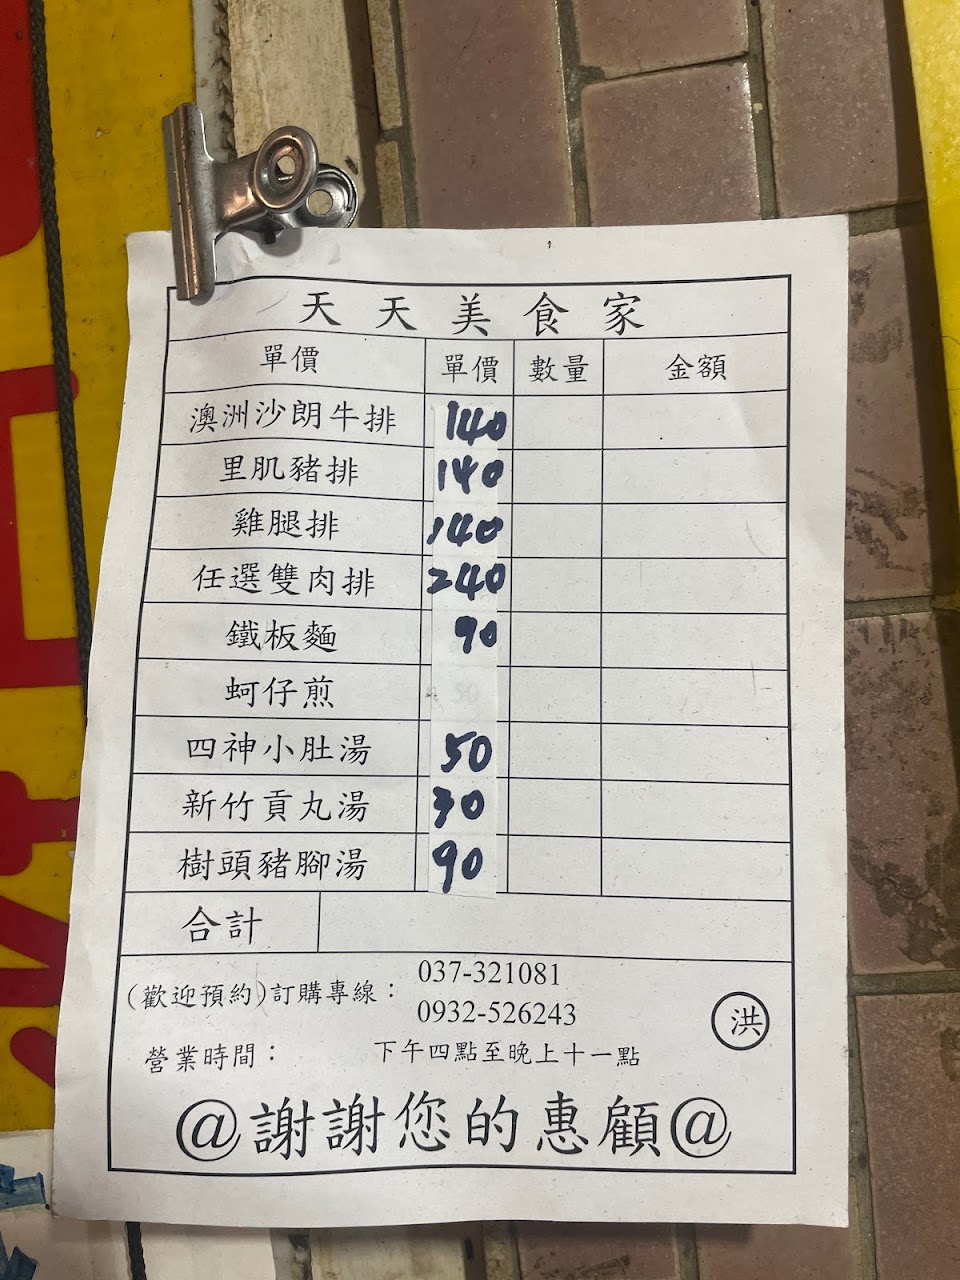 天天美食家
單價 單價 數量 金額
澳洲沙朗牛排 140
里肌豬排 140
雞腿排 140
任選雙肉排 240
鐵板麵 90
蚵仔煎
四神小肚湯 50
新竹貢丸湯 30
樹頭豬腳湯 90
合計
(歡迎預約)訂購專線： 037-321081
0932-526243
洪
營業時間： 下午四點至晚上十一點
@謝謝您的惠顧@